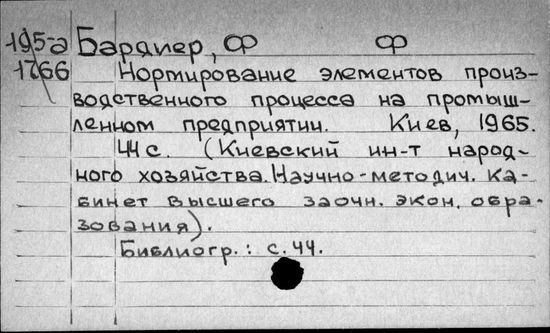 195-а Бардиер, Ф Ф
1766 Нормирование элементов произ-
водственного процесса на промыш-
ленном предприятии. Киев, 1965.
44 с. (Киевский ин-т народ-
ного хозяйства. Научно-методич. ка-
бинет высшего заочн. экон. обра-
зования).
Библиогр.: с. 44.